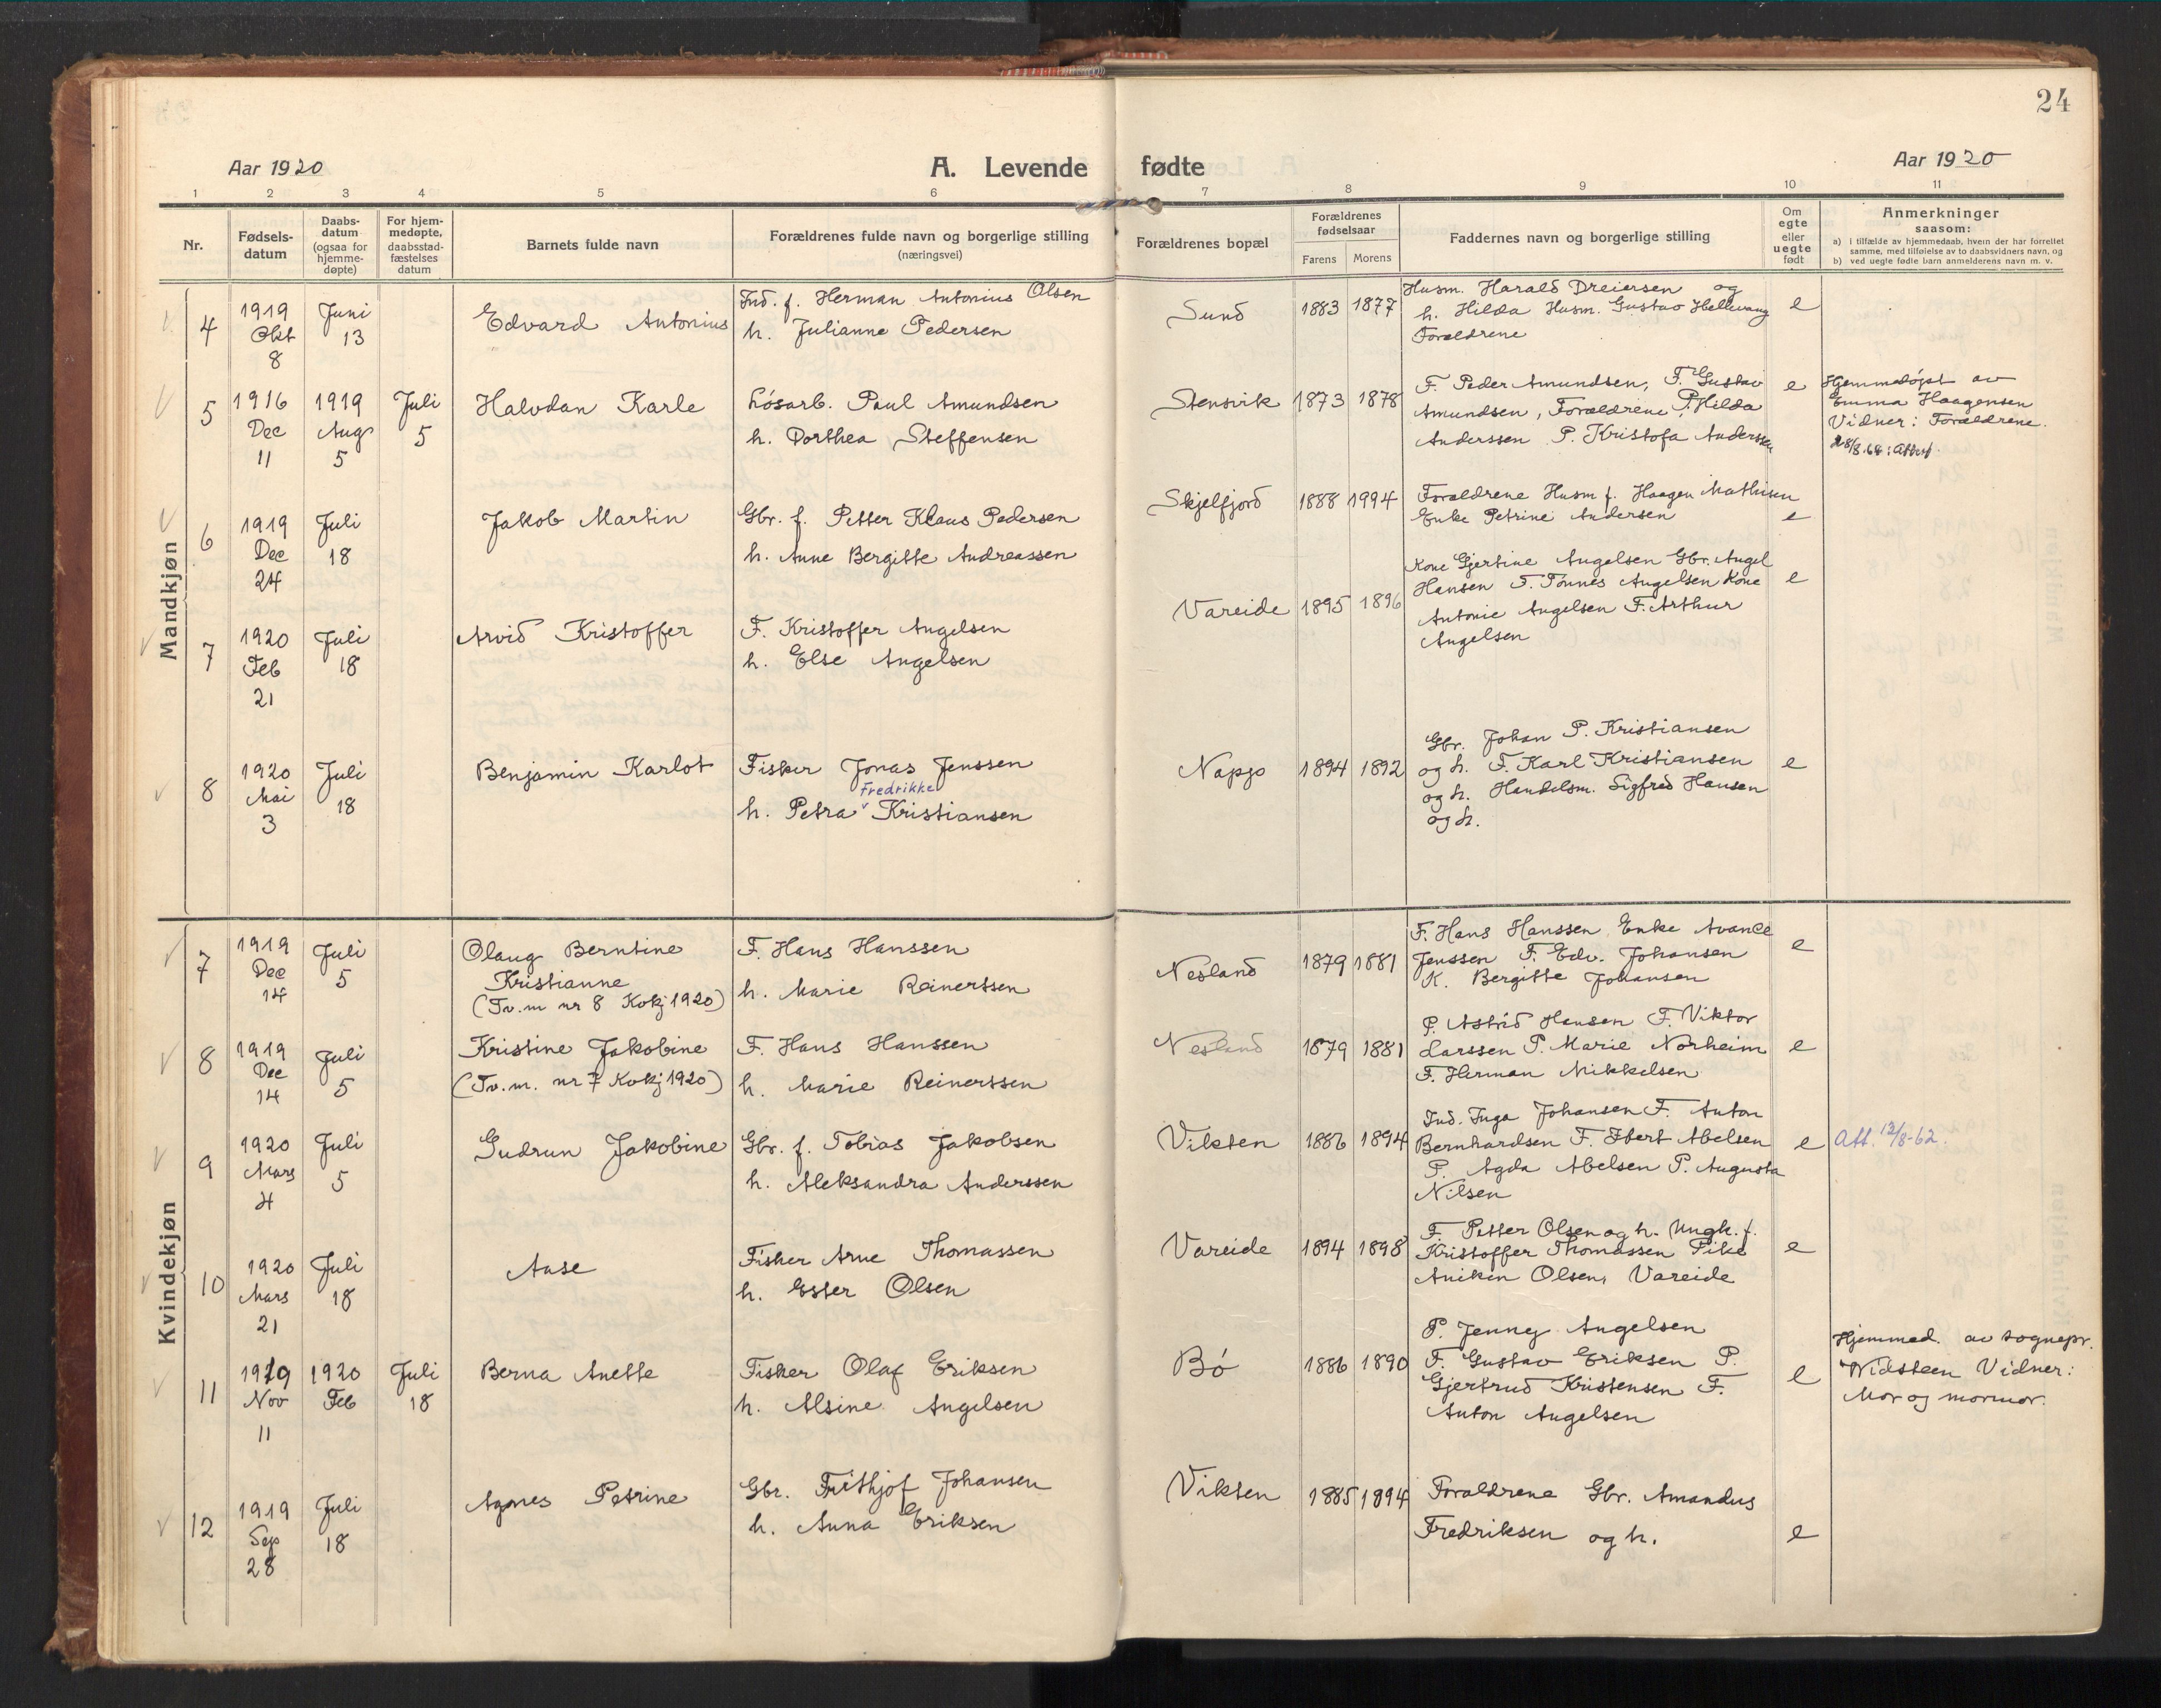 24
Aar 1920
A. Levende fødte
Aar 1920
1 2 3 4 5 6 7 8 9 10 11
Nr.
Fødsels-
datum
Daabs-
datum
(ogsaa for
hjemme-
døpte)
For hjem-
medøpte,
daabsstad-
fæstelses
datum
Barnets fulde navn
Forældrenes fulde navn og borgerlige stilling
(næringsvei)
Forældrenes bopæl
Forældrenes
fødselsaar
Farens Morens
Faddernes navn og borgerlige stilling
Om
egte
eller
uegte
født
Anmerkninger
saasom:
a) i tilfælde av hjemmedaab, hvem der har forrettet
samme, med tilføielse av to daabsvidners navn, og
b) ved uegte fødte barn anmelderens navn m. v.
Mandkjøn
4
1919
Okt
8
Juni
13
Edvard Antonius
Ind. f. Herman Antonius Olsen
h. Julianne Pedersen
Sund
1883 1877
Husm. Harald Dreiersen og
h. Hilda Husm. Gustav Hellevang
Forældrene
e
5
1916
Dec
11
1919
Aug
5
Juli
5
Halvdan Karle
Løsarb. Paul Amundsen
h. Dorthea Steffensen
Stensvik
1873 1878
F. Peder Amundsen, F. Gustav
Amundsen, Forældrene, P. Hilda
Anderssen P. Kristofa Anderssen
e
Hjemmedøpt av
Emma Haagensen
Vidner: Forældrene.
28/8.68: Attest.
6
1919
Dec
24
Juli
18
Jakob Martin
Gbr. f. Petter Klaus Pedersen
h. Anne Bergitte Andreassen
Skjelfjord
1888 1994
Forældrene Husm f. Haagen Mathisen
Enke Petrine Andersen
e
7
1920
Feb
21
Juli
18
Arvid Kristoffer
F. Kristoffer Angelsen
h. Else Angelsen
Vareide
1895 1896
Kone Gjertine Angelsen Gbr. Angel
Hansen F. Tønnes Angelsen Kone
Antonie Angelsen F. Arthur
Angelsen
e
8
1920
Mai
3
Juli
18
Benjamin Karlot
Fisker Jonas Jenssen
Fredrikke
h. Petra v Kristiansen
Napp
1894 1892
Gbr. Johan P. Kristiansen
og h. F. Karl Kristiansen
og h. Handelsm. Sigfred Hansen
og h.
e
Kvindekjøn
7
1919
Dec
14
Juli
5
Olaug Berntine
Kristianne
(Tv. m nr 8 Kvkj 1920)
F. Hans Hanssen
h. Marie Reinertsen
Nesland
1879 1881
F. Hans Hanssen Enke Avance
Jenssen F. Edv. Johansen
K. Bergitte Johansen
e
8
1919
Dec
14
Juli
5
Kristine Jakobine
(Tv. m. nr 7 Kvkj 1920)
F. Hans Hanssen
h. Marie Reinertsen
Nesland
1879 1881
P. Astrid Hansen F. Viktor
Larssen P. Marie Norheim
F. Herman Mikkelsen
e
9
1920
Mars
4
Juli
5
Gudrun Jakobine
Gbr. f. Tobias Jakobsen
h. Aleksandra Anderssen
Vikten
1886 1894
Ind. Inga Johansen F. Anton
Bernhardsen F. Ebert Abelsen
P. Agda Abelsen P. Augusta
Nilsen
e
Att. 13/8-62.
10
1920
Mars
21
Juli
18
Aase
Fisker Arne Thomassen
h. Ester Olsen
Vareide
1894 1898
F. Petter Olsen og h. Ungk. f.
Kristoffer Thomassen Pike
Aniken Olsen, Vareide
e
11
1919
Nov
11
1920
Feb
Juli
18
Berna Anette
Fisker Olaf Eriksen
h. Alsine Angelsen
Bø
1886 1890
P. Jenney Angelsen
F. Gustav Eriksen P.
Gjertrud Kristensen F.
Anton Angelsen
e
Hjemmed. av sognepr.
Widsteen Vidner:
Mor og mormor.
12
1919
Sep
28
Juli
18
Agnes Petrine
Gbr. Frithjof Johansen
h. Anna Eriksen
Vikten
1885 1894
Forældrene Gbr. Amandus
Fredriksen og h.
e